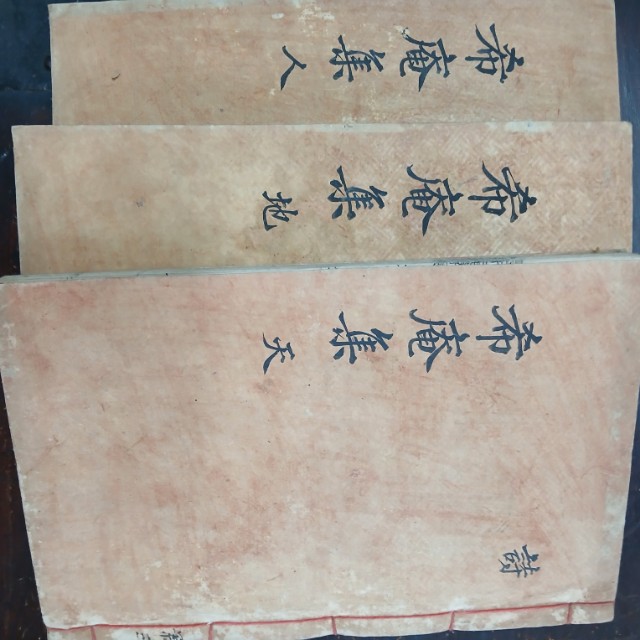 希庵集 人
希庵集 地
希庵集 天
詩